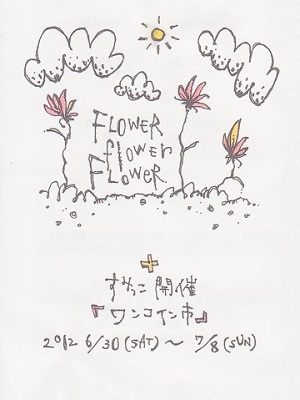 FLOWER
flower
FLOWER
+
すみっこ 開催
『ワンコイン市』
2012 6/30 (SAT) ～ 7/8 (SUN)